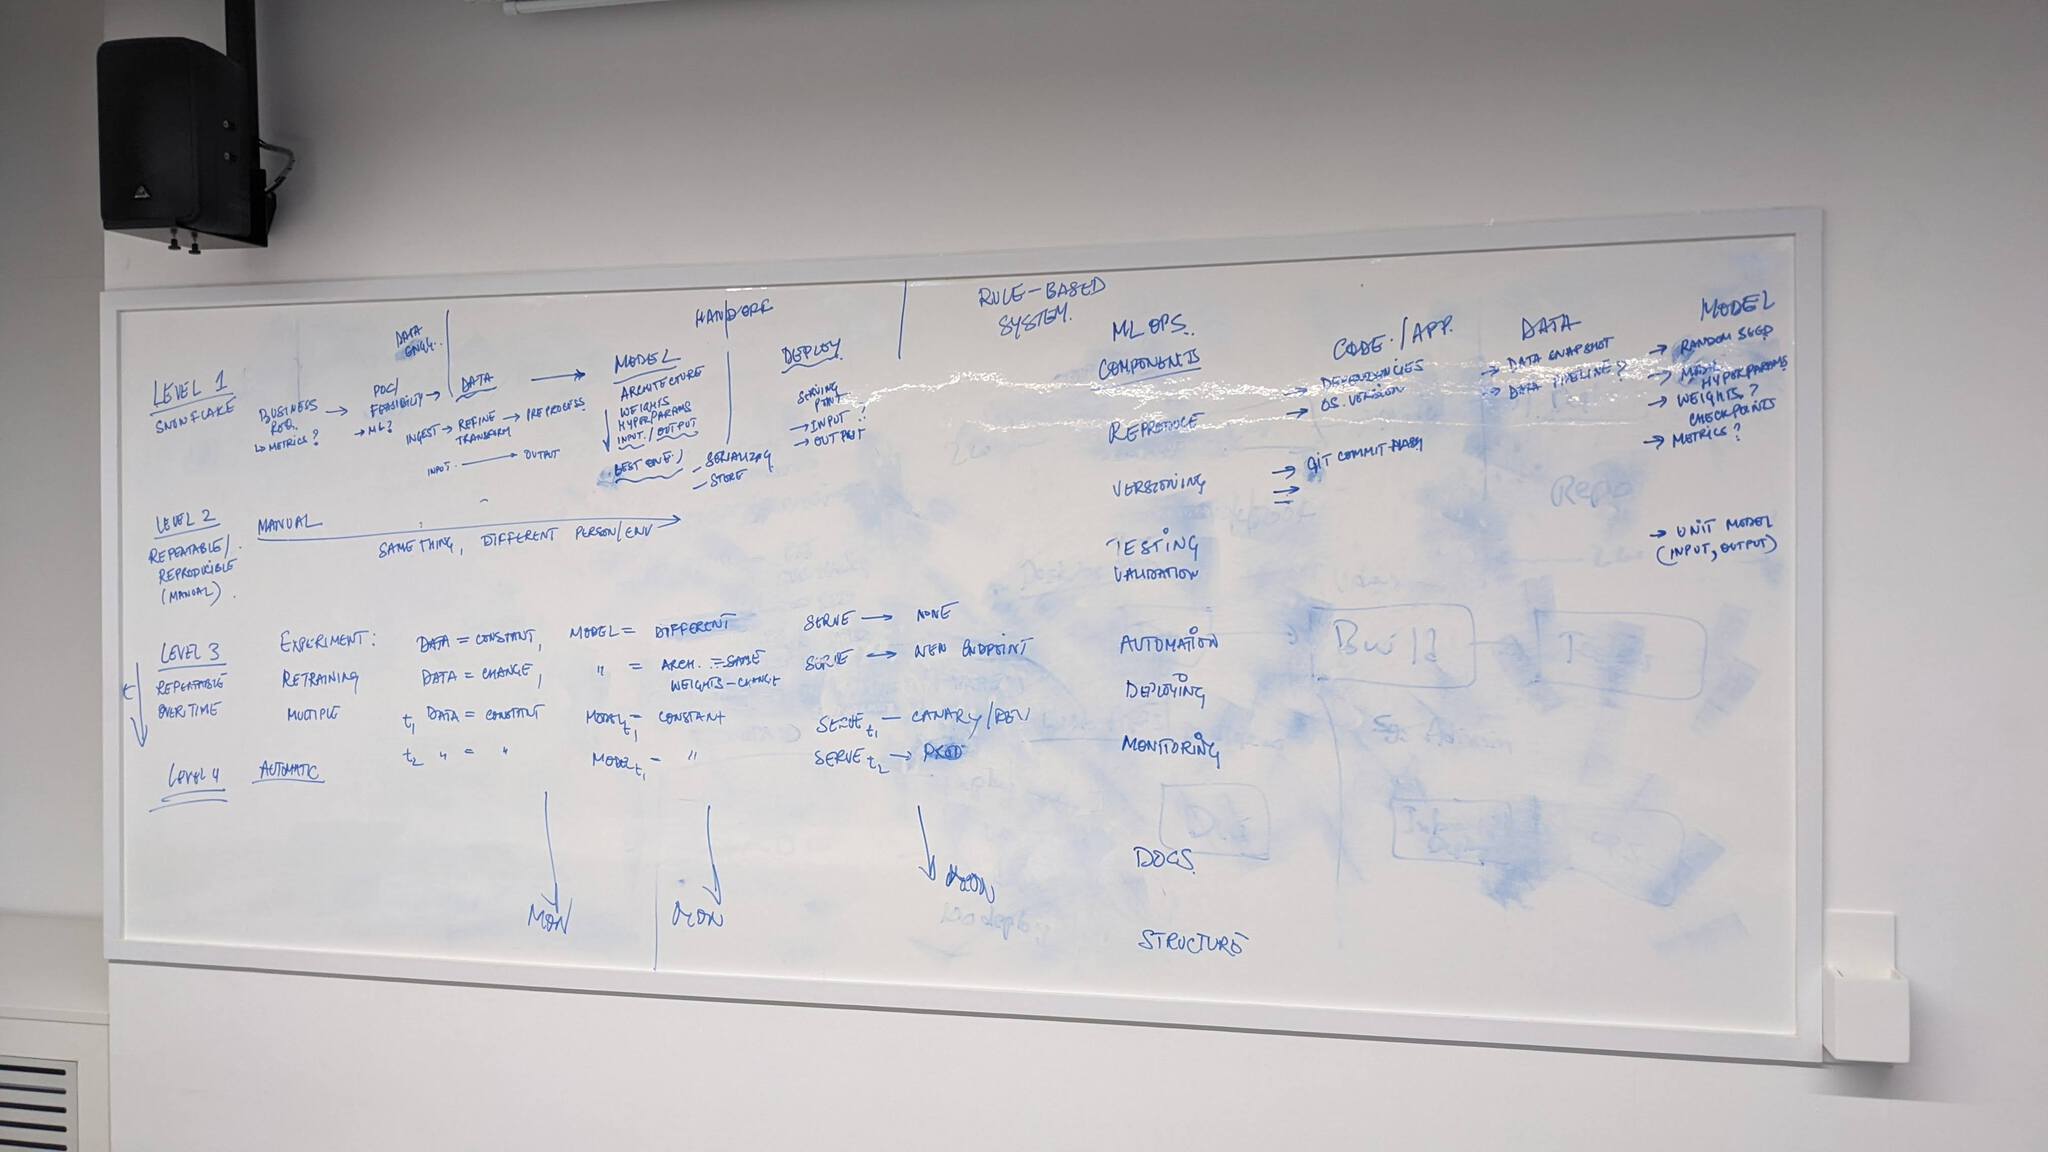 HANDOFF
RULE-BASED
SYSTEM.
DATA
ENG.
LEVEL 1
SNOWFLAKE
BUSINESS
REQ.
↳ METRICS?
POC/
FEASIBILITY →
→ ML?
DATA
INGEST → REFINE → PREPROCESS
TRANSFORM
INPUT → OUTPUT
MODEL
ARCHITECTURE
WEIGHTS
HYPERPARAMS
INPUT/OUTPUT
BEST ONE
- SERIALIZE
- STORE
DEPLOY
SERVING
→ INPUT ?
→ OUTPUT
LEVEL 2
REPEATABLE/
REPRODUCIBLE
(MANUAL).
MANUAL
SAME THING, DIFFERENT PERSON/ENV
LEVEL 3
REPEATABLE
OVER TIME
t
EXPERIMENT: DATA = CONSTANT, MODEL = DIFFERENT SERVE → NONE
RETRAINING DATA = CHANGE, " = ARCH. = SAME SERVE → NEW ENDPOINT
WEIGHTS - CHANGE
MULTIPLE t1 DATA = CONSTANT MODEL t1 = CONSTANT SERVE t1 - CANARY/DEV
t2 " = " MODEL t1 - " SERVE t2 → PROD
LEVEL 4 AUTOMATIC
MON MON MON
ML OPS.
COMPONENTS
REPRODUCE
VERSIONING
TESTING
VALIDATION
AUTOMATION
DEPLOYING
MONITORING
DOCS
STRUCTURE
CODE./APP.
→ DEPENDENCIES
→ OS. VERSION
→ GIT COMMIT
DATA
→ DATA SNAPSHOT
→ DATA PIPELINE?
MODEL
→ RANDOM SEED
→ HYPERPARAMS
→ WEIGHTS?
CHECKPOINTS
→ METRICS?
→ UNIT MODEL
(INPUT, OUTPUT)
Repo
Build